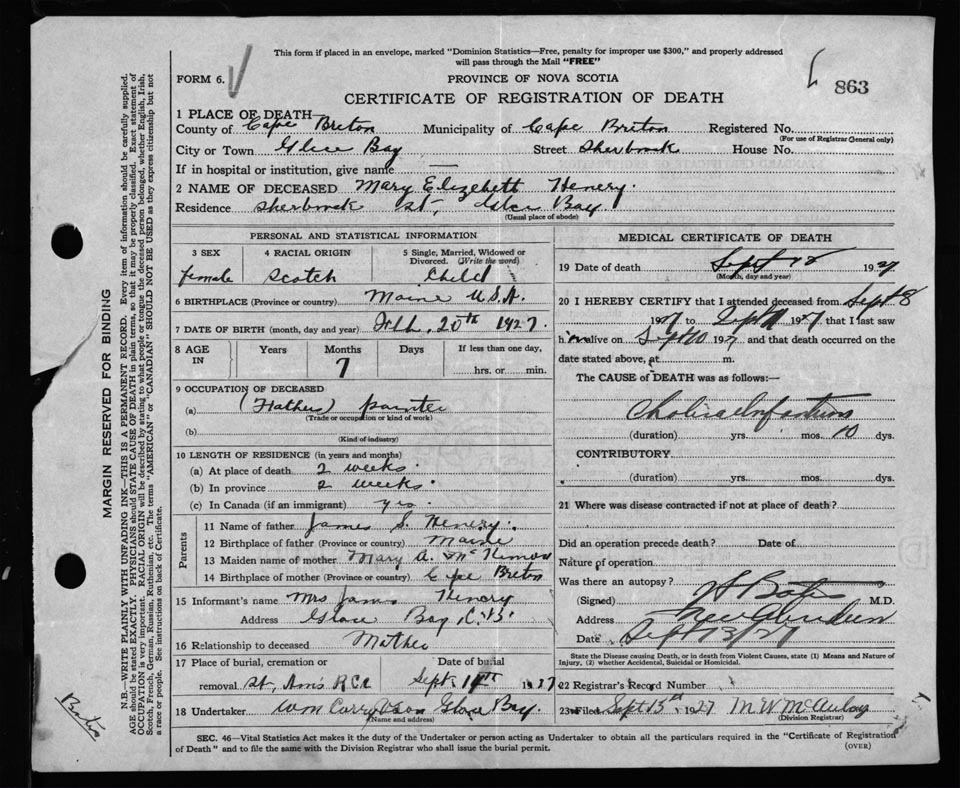 This form if placed in an envelope, marked "Dominion Statistics—Free, penalty for improper use $300," and properly addressed
will pass through the Mail "FREE"
FORM 6.
PROVINCE OF NOVA SCOTIA
863
CERTIFICATE OF REGISTRATION OF DEATH
1 PLACE OF DEATH—
County of Cape Breton Municipality of Cape Briton Registered No.
(For use of Registrar General only)
City or Town Glice Bay Street Sherbrook House No.
If in hospital or institution, give name —
2 NAME OF DECEASED Mary Elizebett Henery.
Residence Sherbrook st, Glce Bay.
(Usual place of abode)
PERSONAL AND STATISTICAL INFORMATION
3 SEX 4 RACIAL ORIGIN 5 Single, Married, Widowed or
Divorced. (Write the word)
female Scotch Child
6 BIRTHPLACE (Province or country) Maine U.S.A.
7 DATE OF BIRTH (month, day and year) Feb. 20th 1927.
8 AGE IN Years Months Days If less than one day,
7 hrs. or min.
9 OCCUPATION OF DECEASED
(a) (Father) painter
(Trade or occupation or kind of work)
(b)
(Kind of industry)
10 LENGTH OF RESIDENCE (in years and months)
(a) At place of death 2 weeks.
(b) In province 2 weeks.
(c) In Canada (if an immigrant) yes.
Parents
11 Name of father James S. Henery.
12 Birthplace of father (Province or country) Maine
13 Maiden name of mother Mary A. Mc
14 Birthplace of mother (Province or country) Cape Breton
15 Informant's name Mrs James Henery
Address Glace Bay C.B.
16 Relationship to deceased Mother
17 Place of burial, cremation or Date of burial
removal St, Ann's R.C. Sept 14th 1927
18 Undertaker Wm Glace Bay.
(Name and address)
MEDICAL CERTIFICATE OF DEATH
19 Date of death Sept 12 1927
(Month, day and year)
20 I HEREBY CERTIFY that I attended deceased from Sept 8
1927 to Sept 11 1927 that I last saw
h im alive on Sept 10 1927 and that death occurred on the
date stated above, at m.
The CAUSE of DEATH was as follows:—
Cholera Infantum
(duration) yrs. mos. 10 dys.
CONTRIBUTORY.
(duration) yrs. mos. dys.
21 Where was disease contracted if not at place of death?
Did an operation precede death? Date of
Nature of operation
Was there an autopsy?
(Signed) Bates M.D.
Address New Aberdeen
Date Sept 13/27
State the Disease causing Death, or in death from Violent Causes, state (1) Means and Nature of
Injury, (2) whether Accidental, Suicidal or Homicidal.
22 Registrar's Record Number
23 Filed Sept 15th 1927 M W McAulay
(Division Registrar)
SEC. 46—Vital Statistics Act makes it the duty of the Undertaker or person acting as Undertaker to obtain all the particulars required in the "Certificate of Registration
of Death" and to file the same with the Division Registrar who shall issue the burial permit.
(OVER)
MARGIN RESERVED FOR BINDING
N.B.—WRITE PLAINLY WITH UNFADING INK—THIS IS A PERMANENT RECORD. Every item of information should be carefully supplied.
AGE should be stated EXACTLY. PHYSICIANS should STATE CAUSE OF DEATH in plain terms, so that it may be properly classified. Exact statement of
OCCUPATION is very important. RACIAL ORIGIN will be described by stating to what people or tongue the deceased person belonged, whether English, Irish,
Scotch, French, German, Russian, Ruthenian, etc. The terms "AMERICAN" or "CANADIAN" SHOULD NOT BE USED as they express citizenship but not
a race or people. See instructions on back of Certificate.